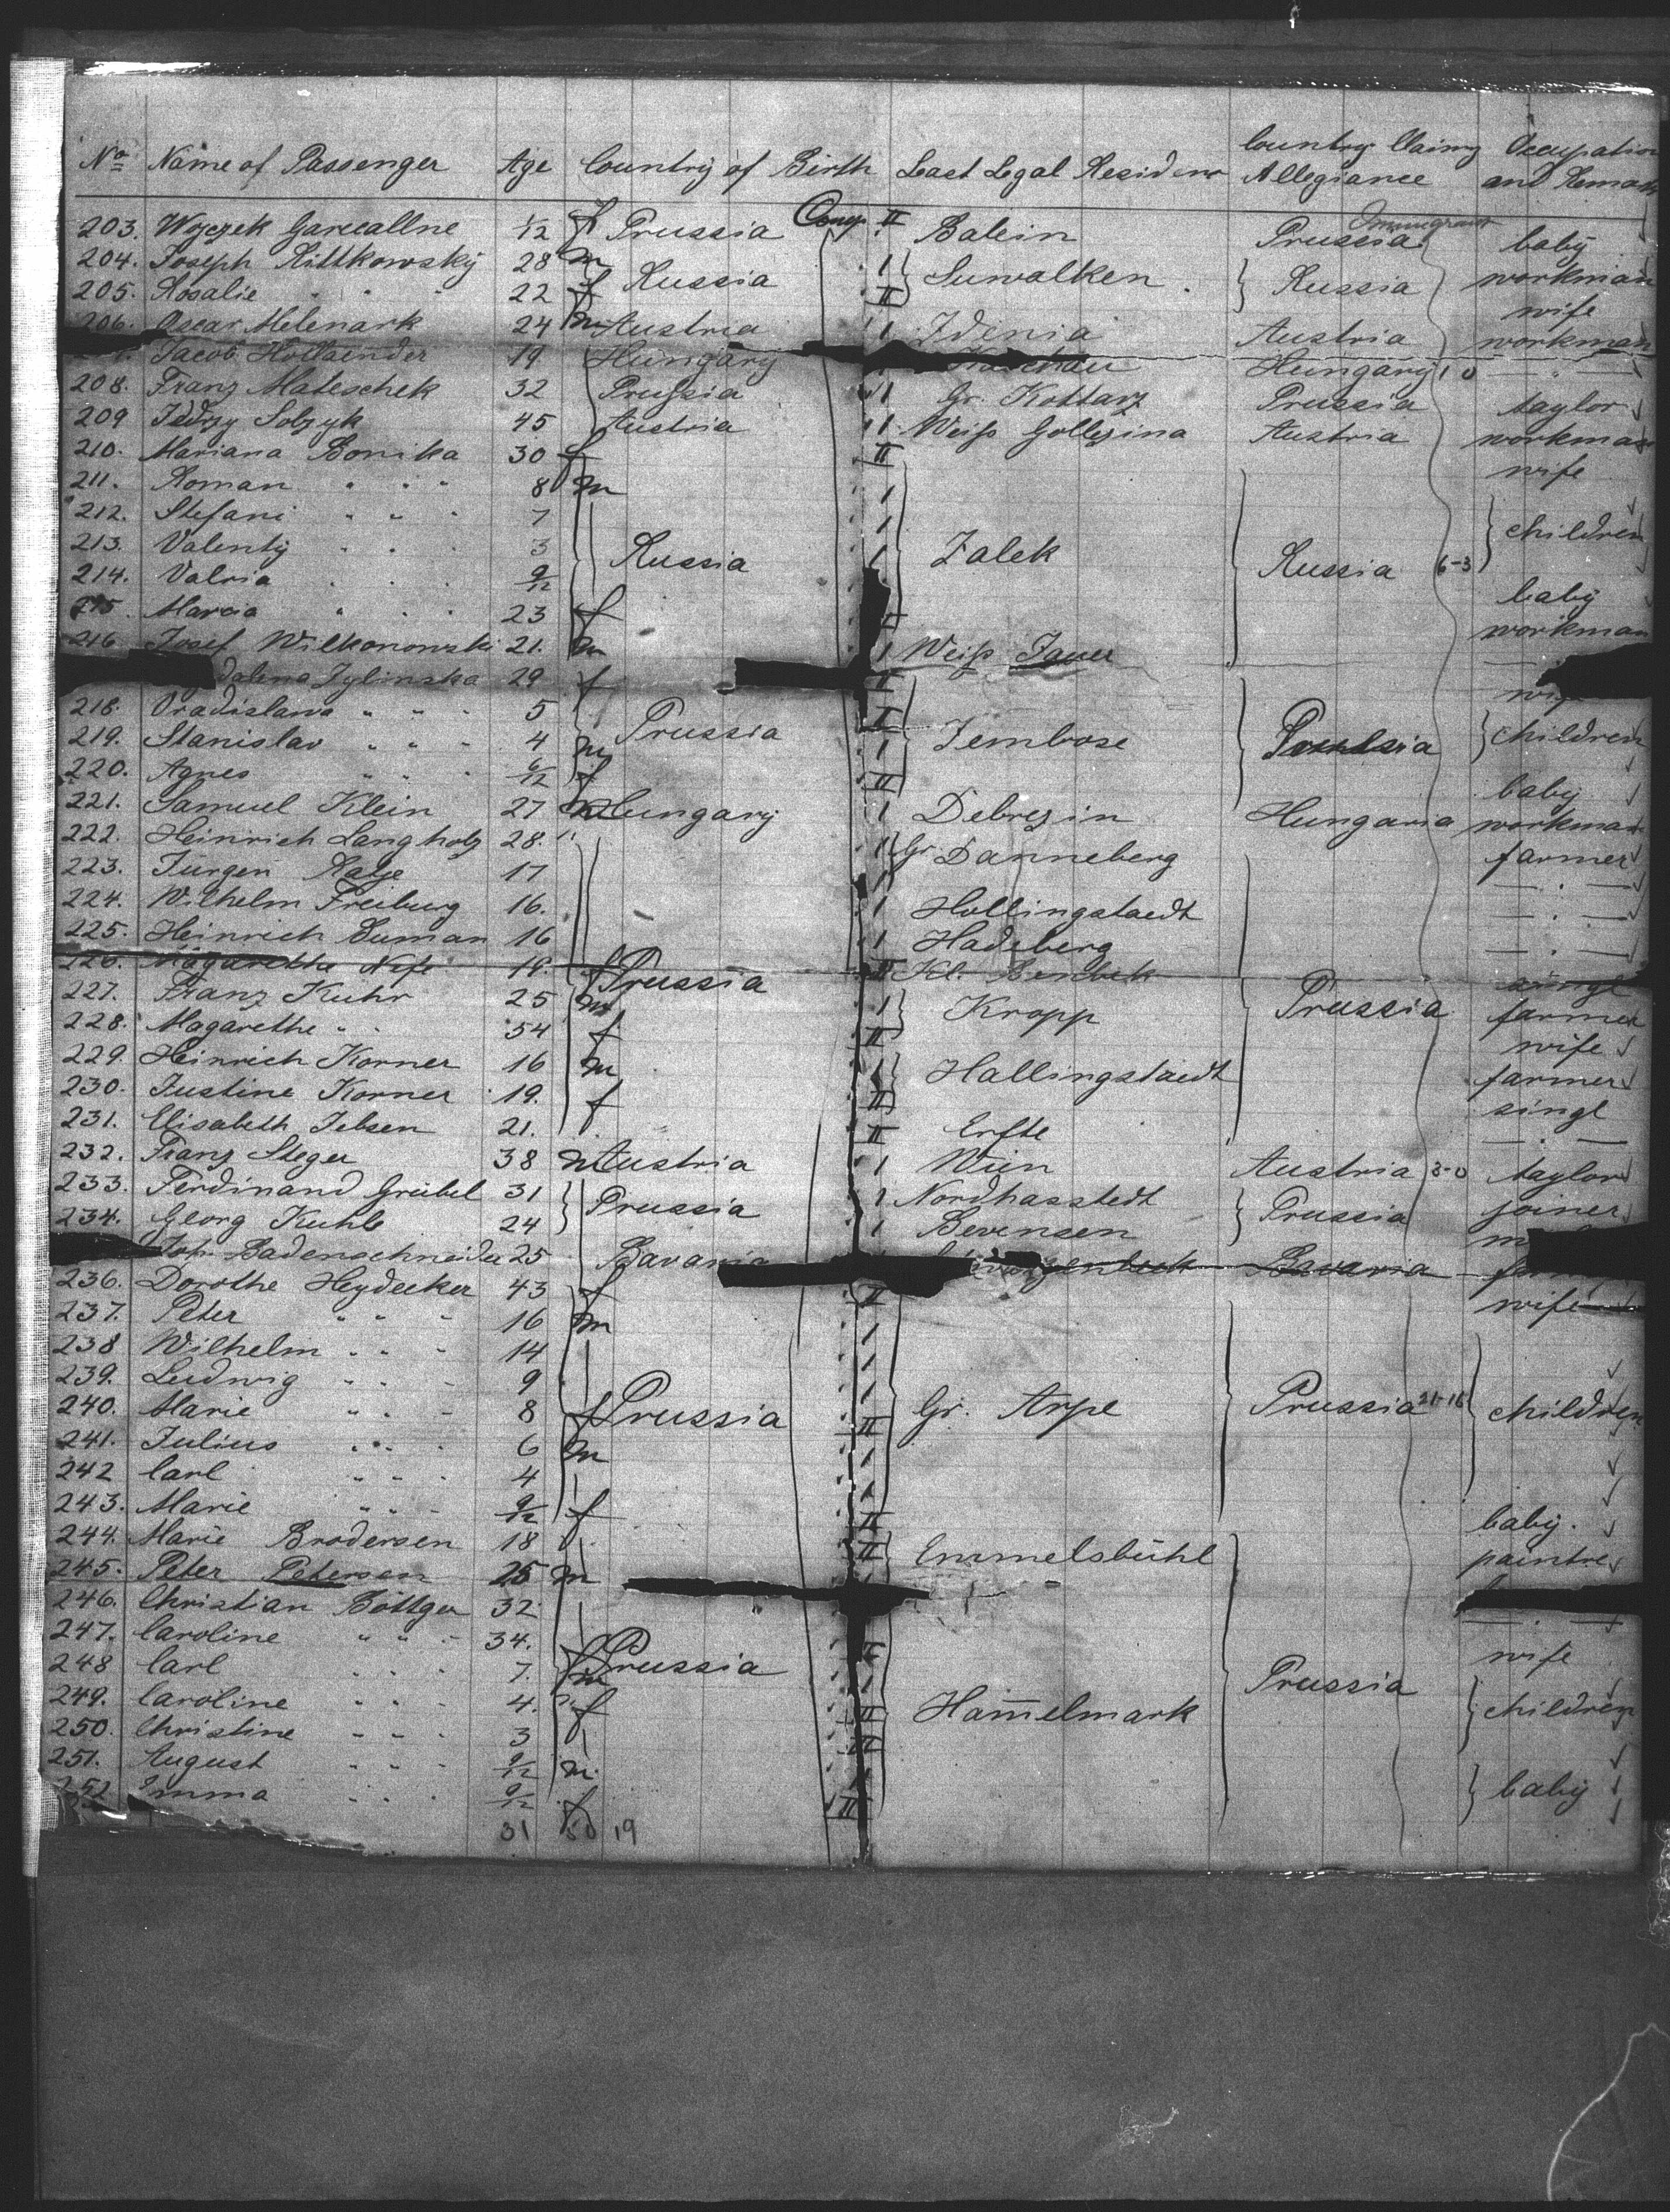 No Name of Passenger Age Country of Birth Last Legal Residence Country Claiming Allegiance Occupation and Remarks
203. Wojczek Garecallne 1/12 f Prussia Comp. II Balein Prussia baby
204. Joseph Rittkowský 28 m Russia 1 Suwalken Russia workman
205. Rosalie " " 22 f II wife
206. Oscar Melenark 24 m Austria 1 Idinia Austria workman
Jacob Hollaender 19 Hungary Hungary 1 0 — " —
208. Franz Mateschek 32 Prussia 1 Gr. Kottarz Prussia taylor
209 Jedrzy Solzyk 45 Austria 1 Weiß Gollezina Austria workman
210. Mariana Bonika 30 f II wife
211. Roman " " " 8 m 1
212. Stefani " " " 7 1 children
213. Valenty " " " 3 Russia 1 Zalek Russia 6-3
214. Valria " " " 9/12 baby
215. Marcia " " " 23 f workman
216. Josef Wilkonowski 21. m 1 Weiß Jauer
dalena Zylinska 29 f II wife
218. Vradislawa " " " 5 Prussia II
219. Stanislav " " " 4 m 1 Zembose Prussia children
220. Agnes " " " 6/12 f II baby
221. Samuel Klein 27 m Hungary 1 Debrezin Hungaria workman
222. Heinrich Langholz 28. 1 Gr. Danneberg farmer
223. Jürgen Ratje 17 1 — " —
224. Wilhelm Freiburg 16. 1 Hollingstaedt — " —
225. Heinrich Suman 16 1 Hadeberg — " —
226. Magarethe Nife 19. f Prussia II Kl. singl
227. Franz Kuhr 25 m 1 Kropp Prussia farmer
228. Magarethe " " 54 f II wife
229. Heinrich Korner 16 m 1 Hallingstaedt farmer
230. Justine Korner 19. f II singl
231. Elisabeth Jebsen 21. II Erfte — " —
232. Franz Steger 38 m Austria 1 Wien Austria 3-0 taylor
233. Ferdinand Grübel 31 Prussia 1 Nordhasstedt Prussia joiner
234. Georg Kuhle 24 1 Bevensen
Joh. Badenschneider 25 Bavaria Bavaria
236. Dorothe Heydecker 43 f II wife
237. Peter " " " 16 m 1
238 Wilhelm " " " 14 1
239. Ludwig " " " 9 1
240. Marie " " " 8 f Prussia II Gr. Arpe Prussia 21-16 children
241. Julius " " " 6 m 1
242 Carl " " " 4 1
243. Marie " " " 9/12 f II baby.
244. Marie Brodersen 18 II Emmelsbühl
245. Peter Petersen 25 m paintre
246. Christian Böttger 32 — " —
247. Caroline " " " 34. f Prussia II wife
248 Carl " " " 7. m 1 Prussia
249. Caroline " " " 4. f II Ham̄elmark children
250. Christine " " " 3 II
251. August " " " 9/12 m. 1
252 Emma " " " 9/12 f II baby
31 50 19